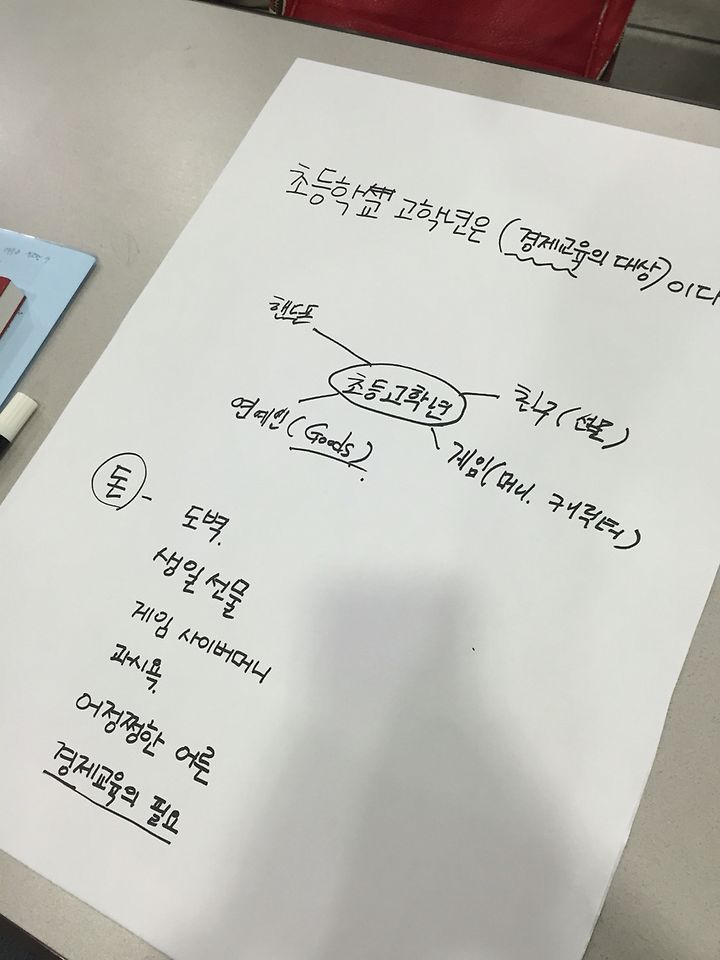 초등학교 고학년은 (경제교육의 대상)이다
핸드폰
초등고학년
친구(선물)
연예인(Goods)
게임(머니. 캐릭터)
돈 -
도벽.
생일선물
게임 사이버머니
과시욕.
어정쩡한 어른
경제교육의 필요